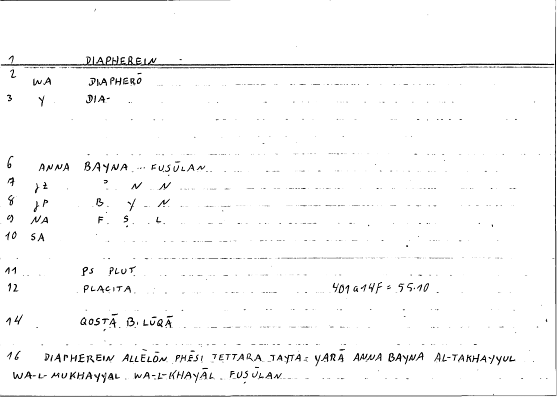 1 DIAPHEREIN
2 WA DIAPHERŌ
3 Y DIA-
6 ANNA BAYNA ... FUṢŪLAN
7 JZ ' N N
8 JP B Y N
9 NA F Ṣ L
10 SA
11 PS PLUT
12 PLACITA 401a14F = 55.10
14 QOSṬĀ B. LŪQĀ
16 DIAPHEREIN ALLĒLŌN PHĒSI TETTARA TAYTA: YARĀ ANNA BAYNA AL-TAKHAYYUL
WA-L-MUKHAYYAL WA-L-KHAYĀL FUṢŪLAN